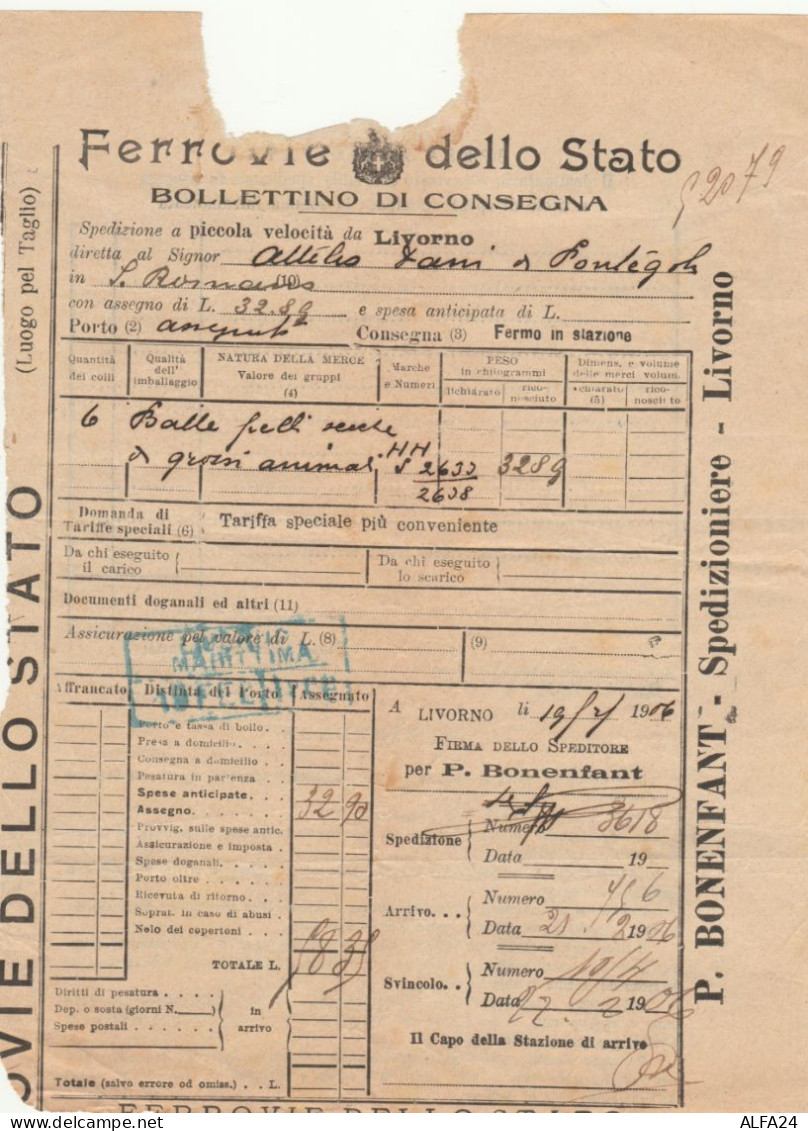 Ferrovie dello Stato
BOLLETTINO DI CONSEGNA
Spedizione a piccola velocità da Livorno
diretta al Signor Attilio
in S. Romano (10)
con assegno di L. 32.89 e spesa anticipata di L.
Porto (2) assegnato Consegna (3) Fermo in stazione
Quantità dei colli
Qualità dell' imballaggio
NATURA DELLA MERCE
Valore dei gruppi
(4)
Marche e Numeri
PESO
in chilogrammi
dichiarato
riconosciuto
Dimens. e volume
delle merci volum.
dichiarato (5)
riconosciuto
6 Balle pelli secche HH
di grossi animali 2633 3289
2638
Domanda di Tariffe speciali (6)
Tariffa speciale più conveniente
Da chi eseguito il carico
Da chi eseguito lo scarico
Documenti doganali ed altri (11)
Assicurazione pel valore di L. (8)
(9)
MARITTIMA
Affrancato Distinta del Porto Assegnato
Porto e tassa di bollo.
Presa a domicilio.
Consegna a domicilio
Pesatura in partenza
Spese anticipate
Assegno 32 90
Provvig. sulle spese antic.
Assicurazione e imposta
Spese doganali
Porto oltre
Ricevuta di ritorno
Soprat. in caso di abusi
Nolo dei copertoni
TOTALE L. 58 35
Diritti di pesatura
Dep. o sosta (giorni N.)
Spese postali
in arrivo
Totale (salvo errore od omiss.) L.
A LIVORNO li 19/2/ 1906
FIRMA DELLO SPEDITORE
per P. Bonenfant
Spedizione
Numero 3618
Data 19
Arrivo
Numero 756
Data 21. 2 1906
Svincolo
Numero 1014
Data 22. 2 1906
Il Capo della Stazione di arrivo
52079
P. BONENFANT - Spedizioniere - Livorno
(Luogo pel Taglio)
OVIE DELLO STATO
FERROVIE DELLO STATO
delcampe.net
ALFA24